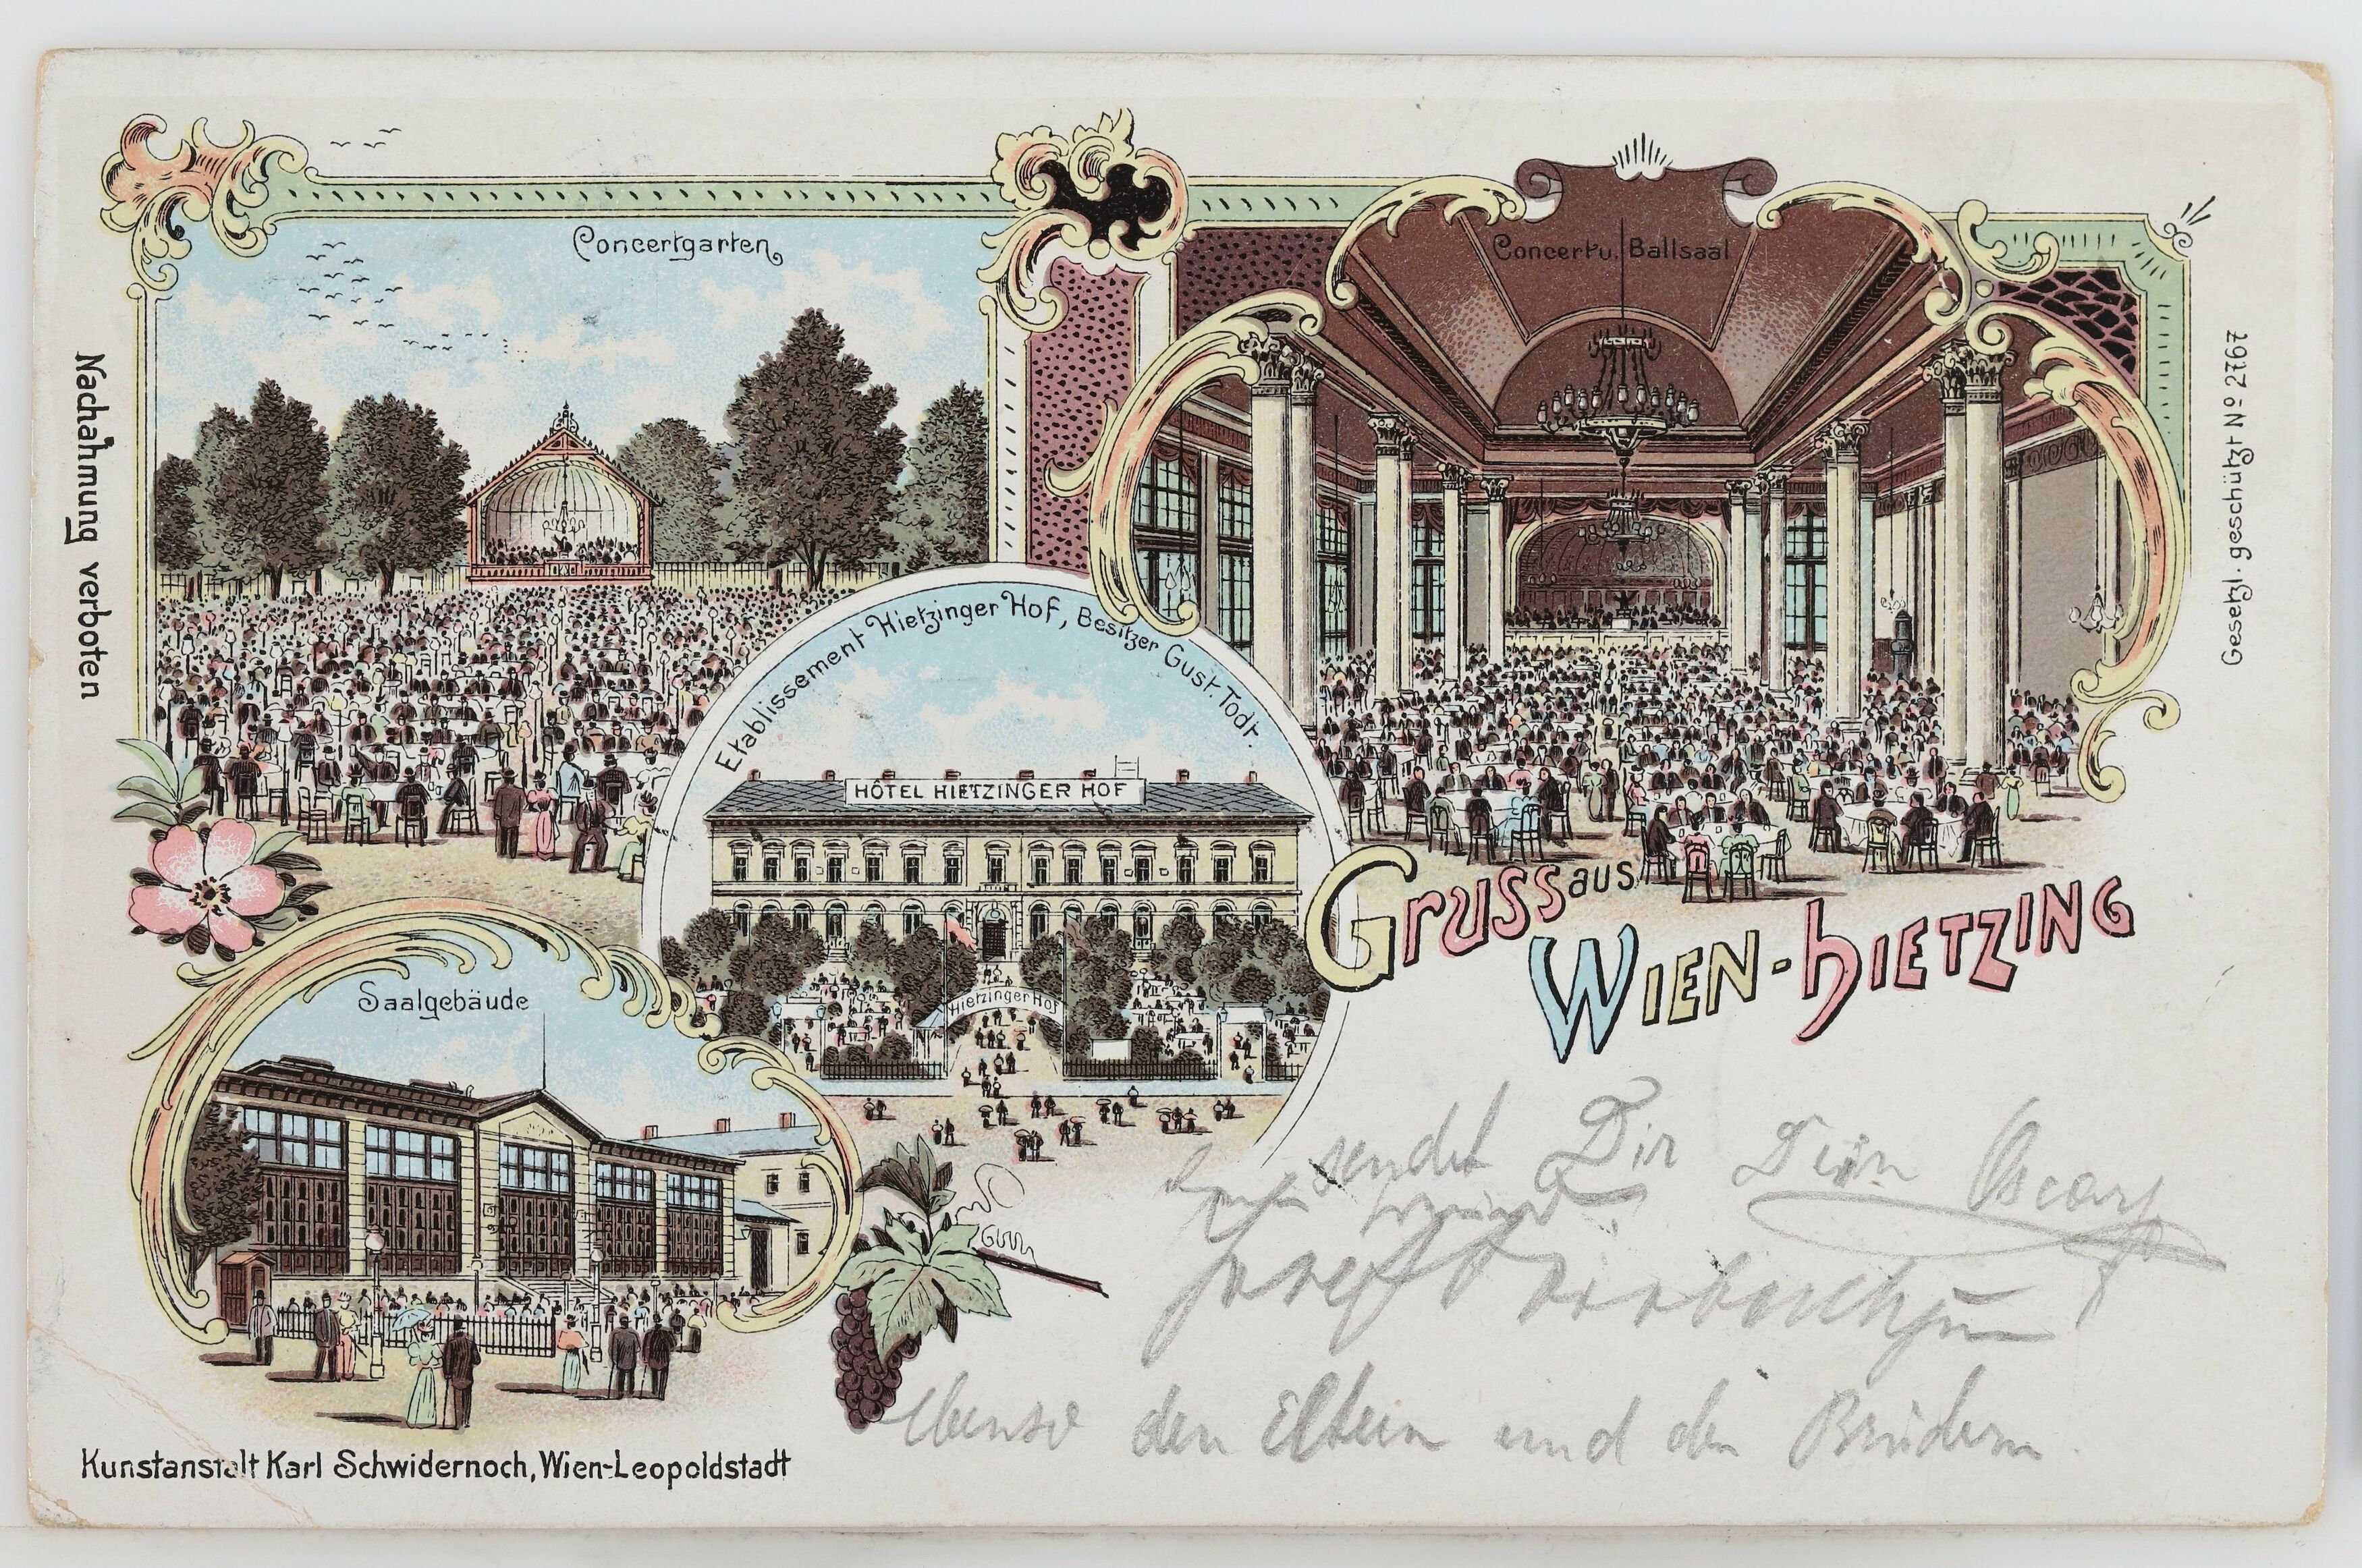 Concertgarten
Concert u. Ballsaal
Nachahmung verboten
Gesetzl. geschützt No 2767
Etablissement Hietzinger Hof, Besitzer Gust. Todt.
HÔTEL HIETZINGER HOF
Hietzinger Hof
Gruss aus
Wien-Hietzing
Saalgebäude
sendet Dir Dein Oscar
Josef
Ebenso den Eltern und den Brüdern
Kunstanstalt Karl Schwidernoch, Wien-Leopoldstadt